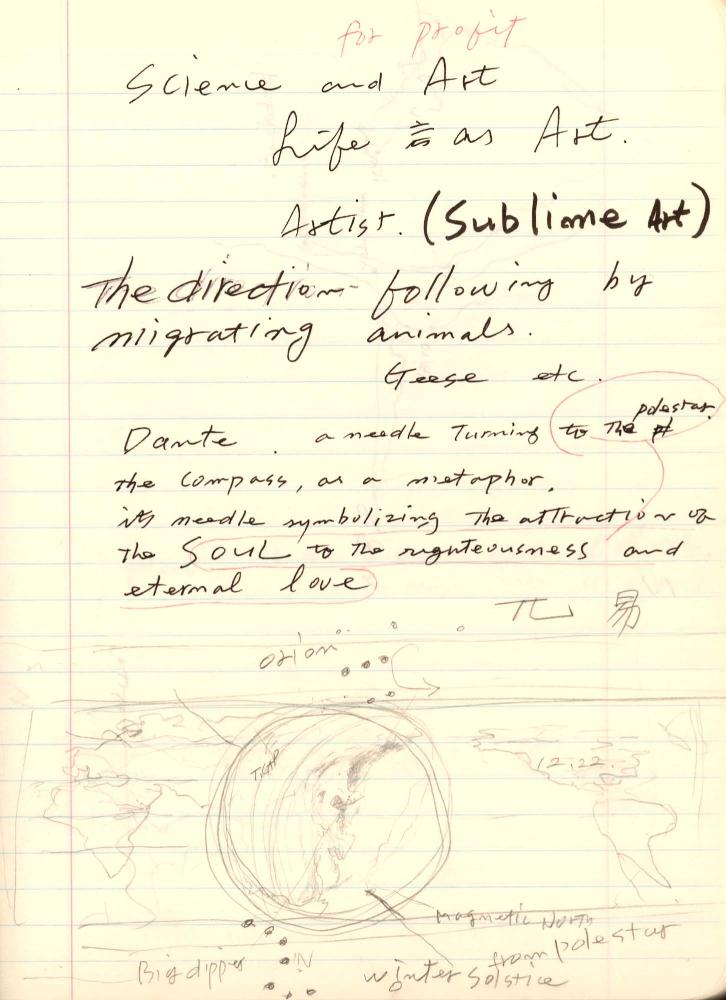 for profit
Science and Art
Life as Art.
Artist. (Sublime Art)
The direction following by
migrating animals.
Geese etc.
polestar.
Dante. a needle Turning to The
the Compass, as a metaphor,
its needle symbolizing The attraction of
The SOUL to The righteousness and
eternal love
易
orion
12.22.
Magnetic North
from polestar
Big dipper
winter Solstice